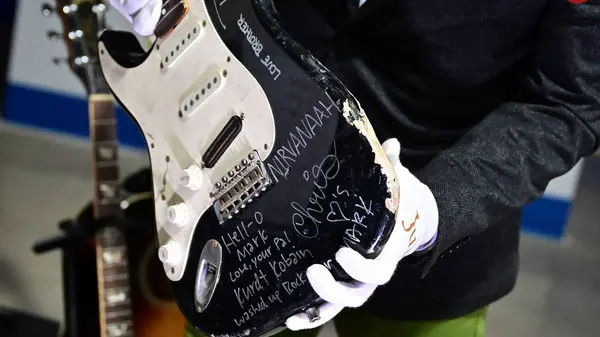 LOVE BROTHER
NIRVANAAH
Chris
♡'s
MARK
Hell-o
Mark
Love, your Pal
Kurdt Kobain
washed up Rock